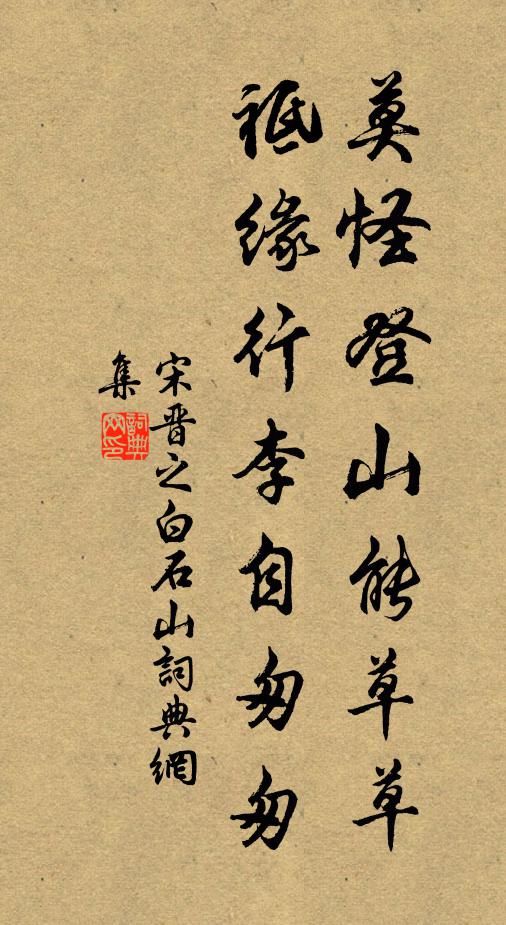 莫怪登山能草草
祗缘行李自匆匆
宋晋之白石山詞典網
集
詞典网印